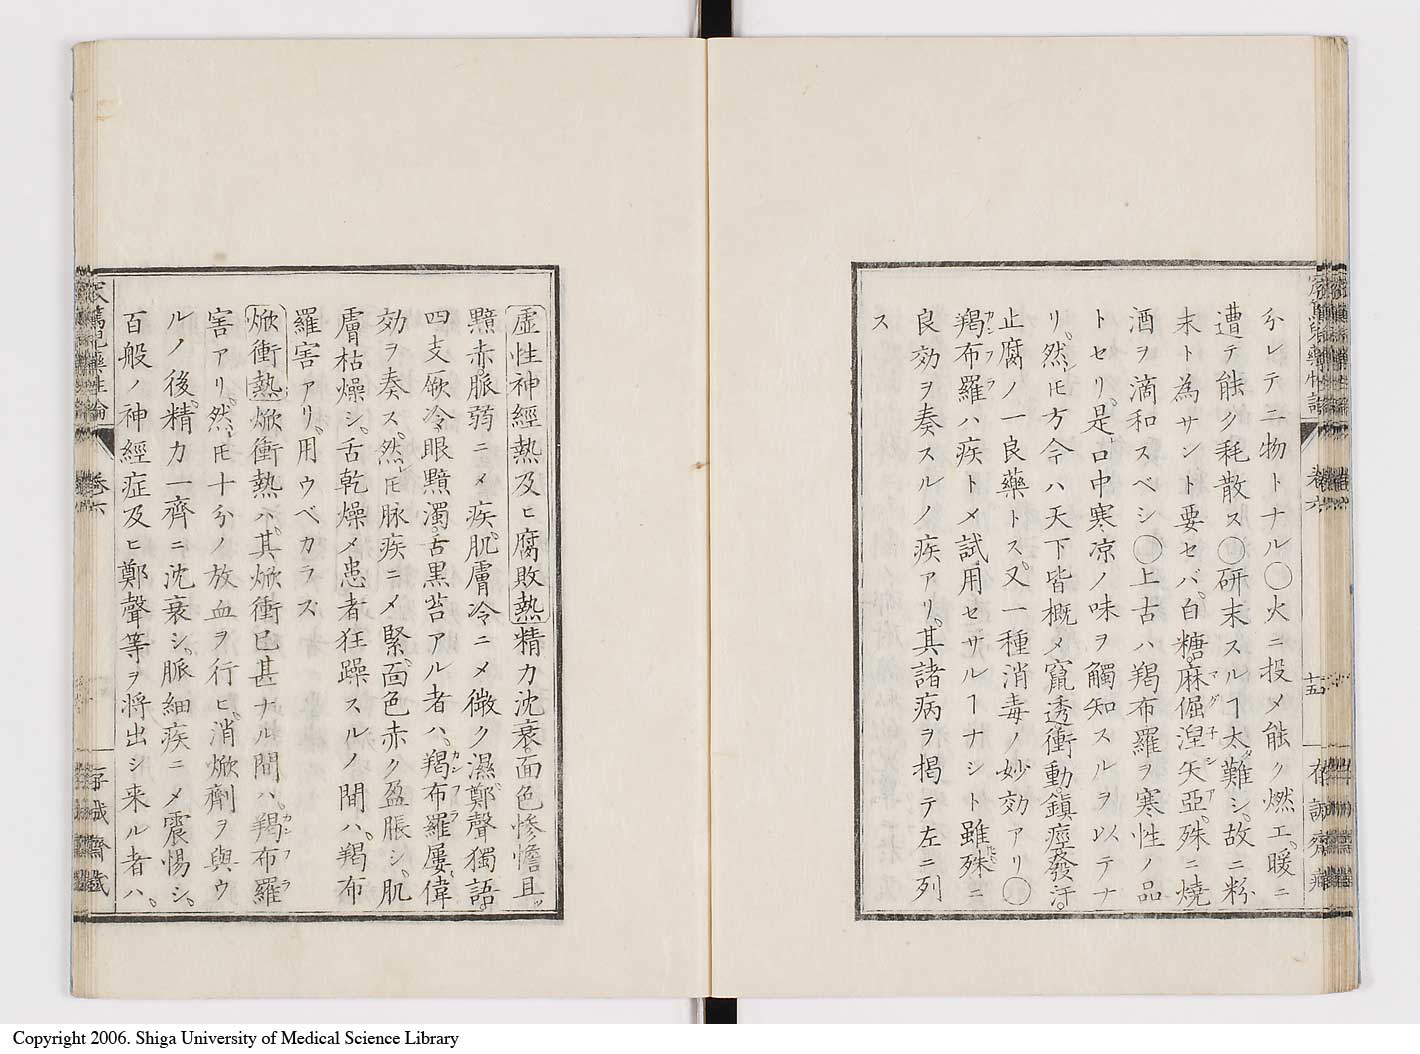 分レテ二物トナル〇火ニ投メ能ク燃エ。暖ニ
遭テ能ク耗散ス〇研末スルヿ太難シ。故ニ粉
末ト為サント要セバ。白糖。麻倔涅矢亞。殊ニ燒
マグ子シア
酒ヲ滴和スベシ〇上古ハ羯布羅ヲ寒性ノ品
トセリ。是口中寒凉ノ味ヲ觸知スルヲ以テナ
リ。然𪜈方今ハ天下皆概メ竄透衝動。鎭痙發汗。
止腐ノ一良藥トス。又一種消毒ノ妙効アリ〇
羯布羅ハ疾トメ試用セサルヿナシト雖殊ニ
カンフラ
良効ヲ奏スルノ疾アリ。其諸病ヲ掲テ左ニ列
ス
卷六
十五
虚性神經熱及ヒ腐敗熱精力沈衰。面色慘憺且ツ
黯赤。脈弱ニメ疾。肌膚冷ニメ微ク濕。鄭聲獨語。
四支厥冷。眼黯濁。舌黒苔アル者ハ。羯布羅屢偉
カンフラ
効ヲ奏ス。然レ𪜈脉疾ニメ緊。面色赤ク盈脹シ。肌
膚枯燥シ。舌乾燥メ患者狂躁スルノ間ハ。羯布
羅害アリ。用ウベカラズ
焮衝熱焮衝熱ハ。其焮衝已甚ナル間ハ。羯布羅
カンフラ
害アリ。然𪜈十分ノ放血ヲ行ヒ。消焮劑ヲ與ウ
ルノ後。精力一齊ニ沈衰シ。脈細疾ニメ震惕シ。
百般ノ神經症及ヒ鄭聲等ヲ将出シ来ル者ハ。
藥性論
卷六
Copyright 2006. Shiga University of Medical Science Library